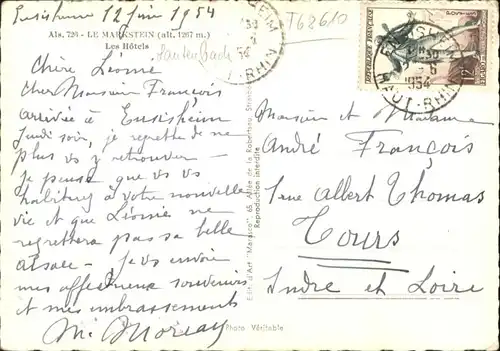 Ensisheim 12 juin 1954
T62610
Als. 726 - LE MARKSTEIN (alt. 1267 m.)
Les Hôtels
Lautenbach
Chère Léonie
Cher Monsieur François
arrivée à Ensisheim
jeudi soir, je regrette de ne
plus vs y retrouver -
je pense que vs vs
habituez à votre nouvelle
vie et que Léonie ne
regrettera pas sa belle
alsace - je vs envoie
mes affectueux souvenirs
et mes embrassements
M. Moreau
Photo Véritable
Edit. d'Art "Marasco" 65, Allée de la Robertsau, Strasbourg
Reproduction interdite
REPUBLIQUE FRANÇAISE
12F
POSTES
ENSISHEIM
1954
HAUT-RHIN
Monsieur et Madame
André François
rue Albert Thomas
Tours
Indre et Loire